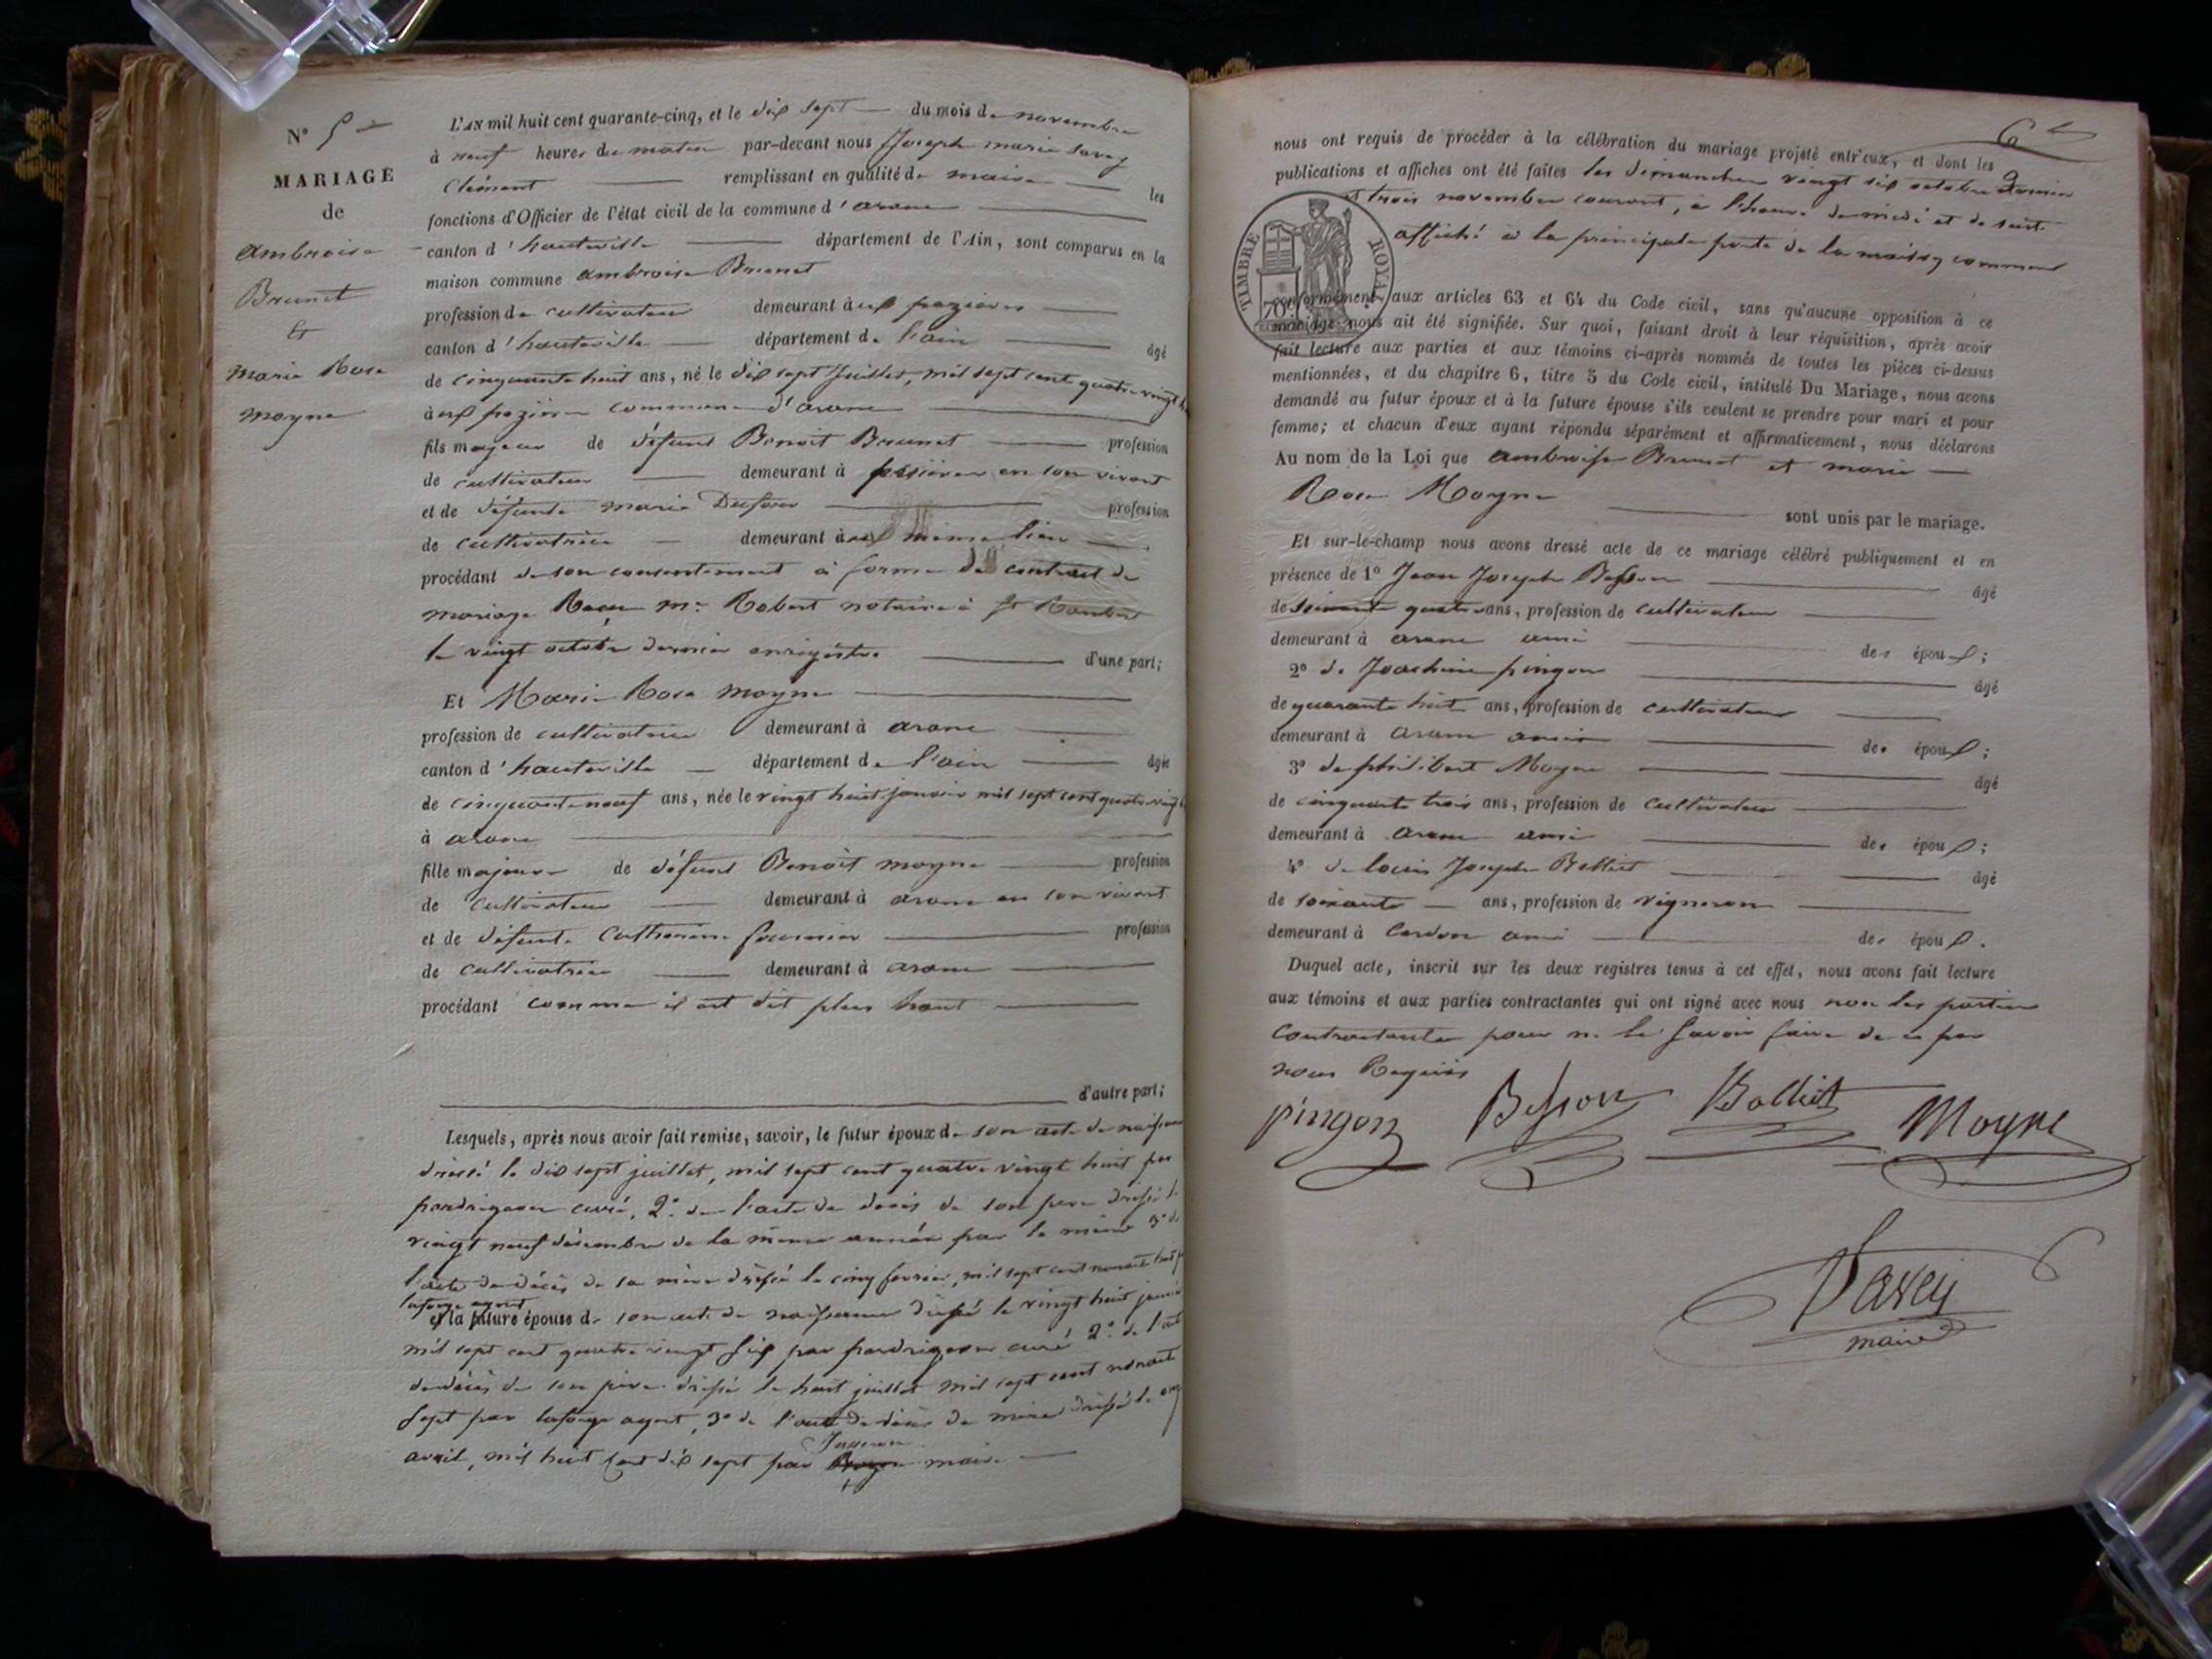 N° 5
MARIAGE
de
Ambroise
Brunet
&
Marie Rose
Moyne
L'AN mil huit cent quarante-cinq, et le dix sept du mois de novembre
à neuf heures du matin par-devant nous Joseph marie savey
Clément remplissant en qualité de maire les
fonctions d'Officier de l'état civil de la commune d'arane
canton d'hauteville département de l'Ain, sont comparus en la
maison commune ambroise Brunet
profession de cultivateur demeurant à
canton d'hauteville département de l'ain âgé
de cinquante huit ans, né le dix sept Juillet, mil sept cent quatre vingt
commune d'arane
fils majeur de défunt Benoit Brunet profession
de cultivateur demeurant à en son vivant
et de défunte marie Dufour profession
de cultivatrice demeurant au même lieu
procédant de son consentement à forme de contrat de
mariage Reçu me Robert notaire à St Rambert
le vingt octobre dernier enrégistré d'une part;
Et Marie Rose moyne
profession de cultivatrice demeurant à arane
canton d'hauteville département de l'ain âgée
de cinquante neuf ans, née le vingt huit janvier mil sept cent quatre vingt
à arane
fille majeure de défunt Benoit moyne profession
de cultivateur demeurant à arane en son vivant
et de défunte Catherine fournier profession
de cultivatrice demeurant à arane
procédant comme il est dit plus haut
d'autre part;
Lesquels, après nous avoir fait remise, savoir, le futur époux de son acte de naissance
dressé le dix sept juillet, mil sept cent quatre vingt huit par
curé, 2° de l'acte de décès de son père dressé le
vingt neuf décembre de la même année par le même 3° de
l'acte de décès de sa mère dressé le cinq fevrier, mil sept cent nonante huit
laforge agent
et la future épouse de son acte de naissance dressé le vingt huit janvier
mil sept cent quatre vingt six par curé 2° de l'acte
de décès de son père dressé le huit juillet mil sept cent nonante
sept par laforge agent, 3° de l'acte de décès de mère dressé le
avril, mil huit cent dix sept par maire
nous ont requis de procéder à la célébration du mariage projeté entr'eux, et dont les
publications et affiches ont été faites les dimanches vingt six octobre dernier
et trois novembre courant, à l'heure de midi et de suite
affiché à la principale porte de la maison commune
TIMBRE ROYAL
70c
conformément aux articles 63 et 64 du Code civil, sans qu'aucune opposition à ce
mariage nous ait été signifiée. Sur quoi, faisant droit à leur réquisition, après avoir
fait lecture aux parties et aux témoins ci-après nommés de toutes les pièces ci-dessus
mentionnées, et du chapitre 6, titre 5 du Code civil, intitulé Du Mariage, nous avons
demandé au futur époux et à la future épouse s'ils veulent se prendre pour mari et pour
femme; et chacun d'eux ayant répondu séparément et affirmativement, nous déclarons
Au nom de la Loi que ambroise Brunet et marie
Rose Moyne
sont unis par le mariage.
Et sur-le-champ nous avons dressé acte de ce mariage célébré publiquement et en
présence de 1° Jean Joseph Besson âgé
de soixante quatre ans, profession de cultivateur
demeurant à arane ami des époux;
2° de Joachim pingon âgé
de quarante huit ans, profession de cultivateur
demeurant à arane ami des époux;
3° de philibert Moyne âgé
de cinquante trois ans, profession de cultivateur
demeurant à arane ami des époux;
4° de louis Joseph Bolliet âgé
de soixante ans, profession de vigneron
demeurant à Cerdon ami des époux.
Duquel acte, inscrit sur les deux registres tenus à cet effet, nous avons fait lecture
aux témoins et aux parties contractantes qui ont signé avec nous non les parties
contractantes pour ne le savoir faire de ce par
nous Requis
pingon Besson Bolliet Moyne
Savey
maire